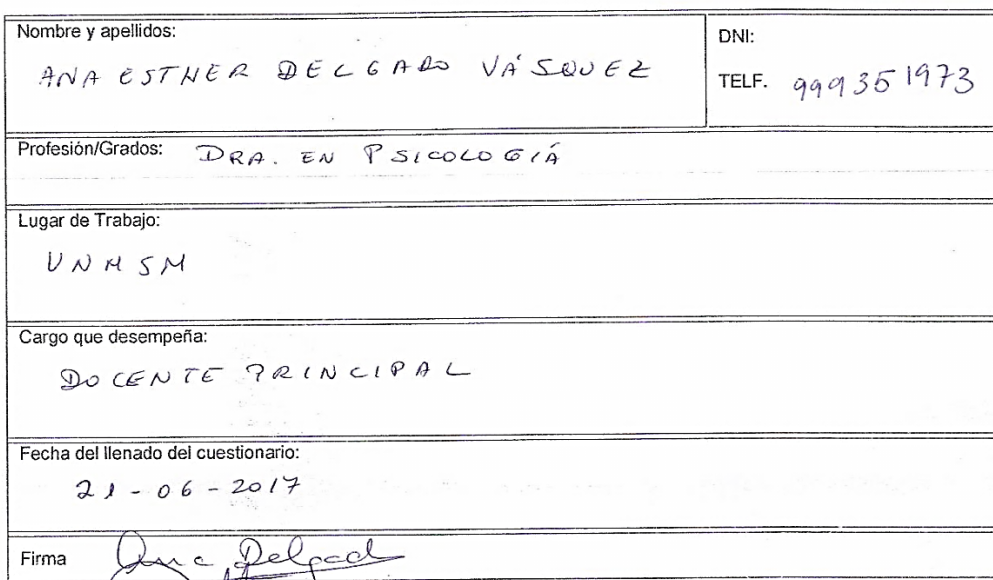 Nombre y apellidos:
ANA ESTHER DELGADO VÁSQUEZ
DNI:
TELF. 999351973
Profesión/Grados: DRA. EN PSICOLOGÍA
Lugar de Trabajo:
UNMSM
Cargo que desempeña:
DOCENTE PRINCIPAL
Fecha del llenado del cuestionario:
21-06-2017
Firma Ana Delgad